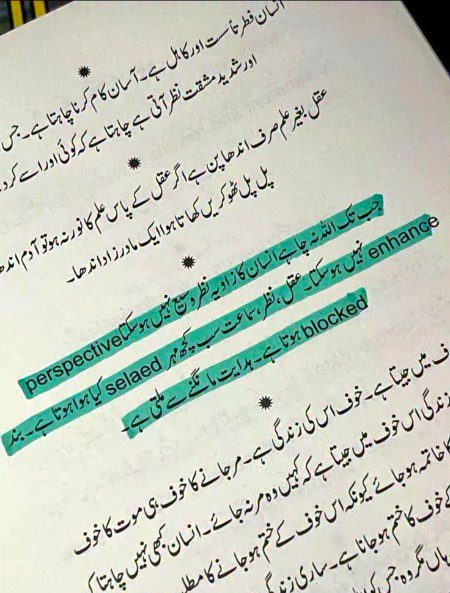 انسان فطرتاً سست اور کاہل ہے۔ آسان کام کرنا چاہتا ہے۔ جس
اور شدید مشقت نظر آتی ہے چاہتا ہے کہ کوئی اور اسے کر دے
عقل بغیر علم صرف اندھا پن ہے اگر عقل کے پاس علم کا نور نہ ہو تو آدم اندھا
پل پل ٹھوکریں کھاتا ہوا ایک مادر زاد اندھا۔
جب تک اللہ نہ چاہے انسان کا زاویہ نظر وسیع نہیں ہو سکتا perspective
enhance نہیں ہو سکتا۔ عقل، نظر، سماعت سب کچھ مہر selaed کیا ہوا ہوتا ہے۔ بند
blocked ہوتا ہے۔ ہدایت مانگنے سے ملتی ہے۔
ف میں جیتا ہے۔ خوف اس کی زندگی ہے۔ مر جانے کا خوف ہی موت کا خوف
زندگی اس خوف میں جیتا ہے کہ کہیں وہ مر نہ جائے۔ انسان کبھی نہیں چاہتا کہ
کا خاتمہ ہو جائے کیونکہ اس خوف کے ختم ہو جانے کا مطلب
کے خوف کا ختم ہو جانا ہے۔ ساری زندگی
ہاں مگر وہ جس کو